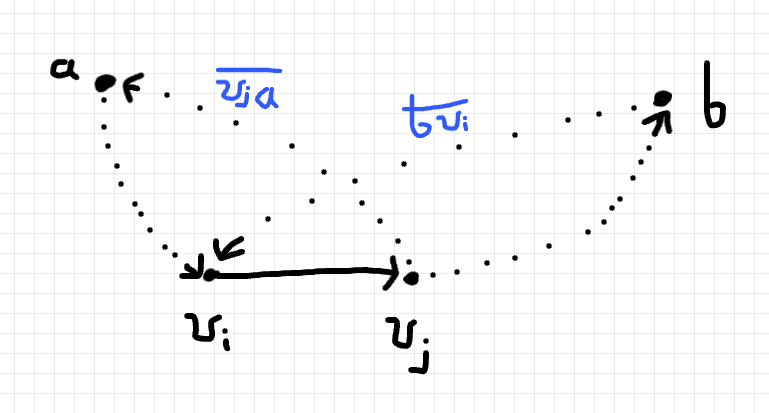 a
v̅ⱼ̅a̅
b̅v̅ᵢ̅
b
vᵢ
vⱼ